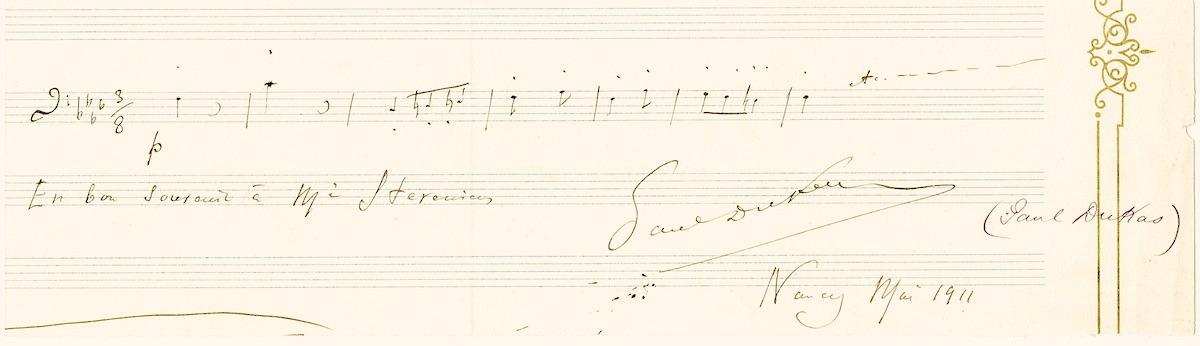 3/8
p
En bon Souvenir à Mr
Paul Dukas
(Paul Dukas)
Nancy Mai 1911